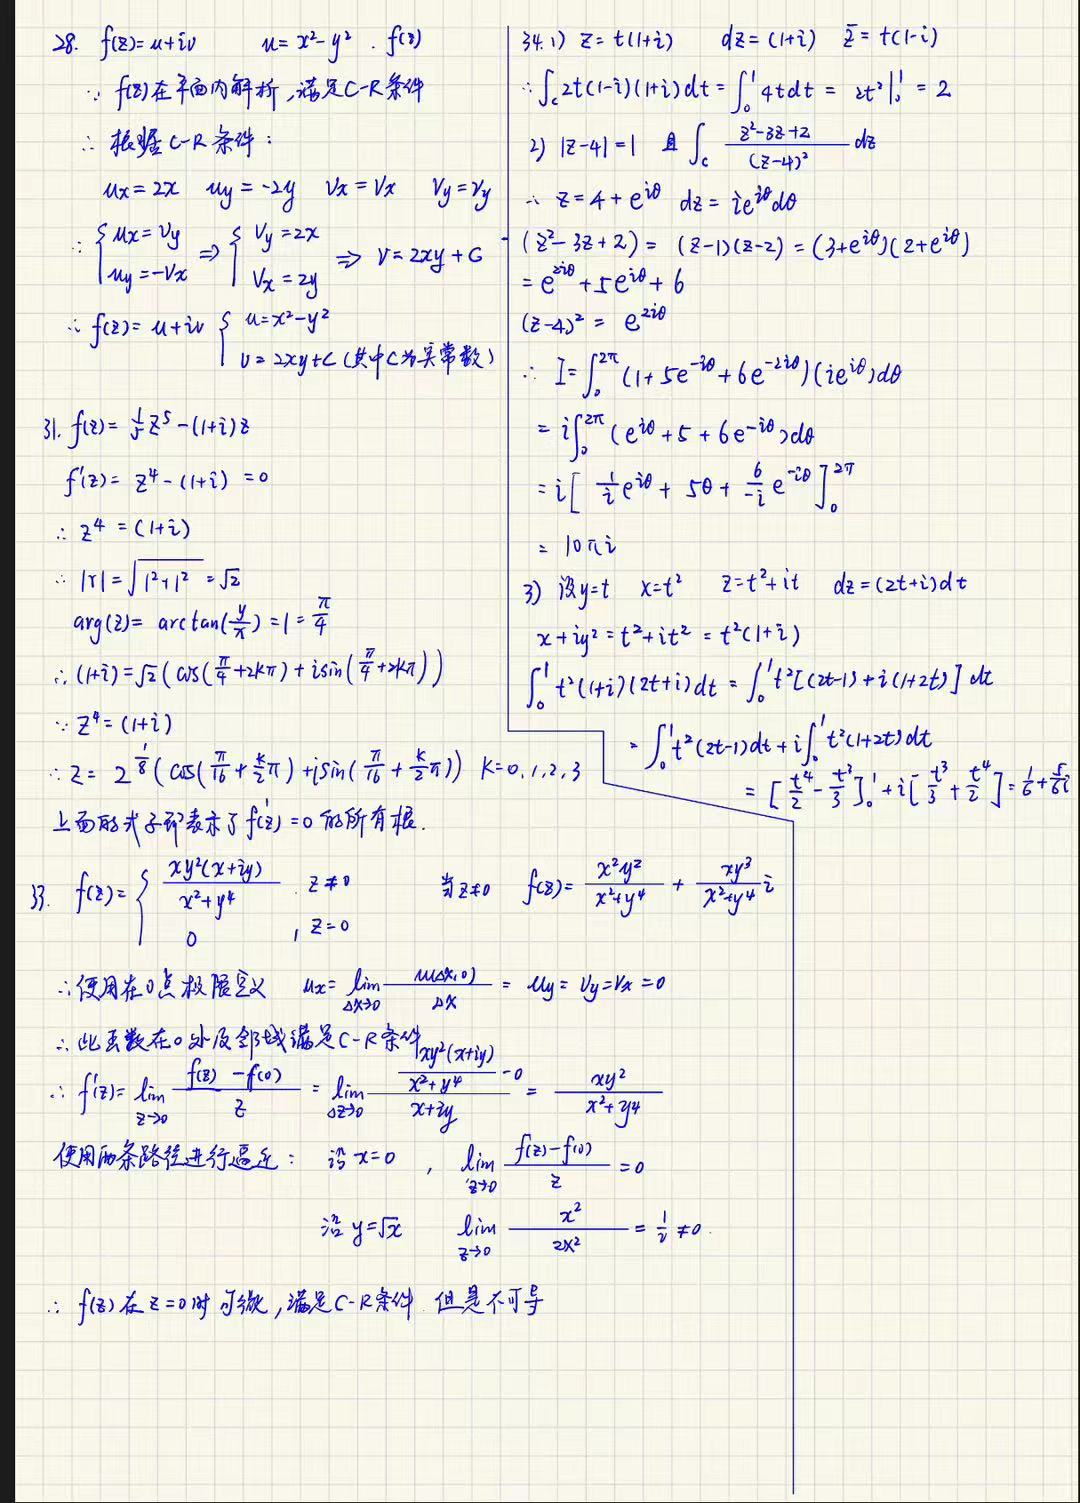 28. f(z)=u+iv u=x²-y² . f(z)
∵ f(z)在平面内解析,满足C-R条件
∴ 根据C-R条件:
ux=2x uy=-2y vx=vx vy=vy
∴ { ux=vy uy=-vx ⇒ { vy=2x vx=2y ⇒ v=2xy+C
∴ f(z)=u+iv { u=x²-y²
v=2xy+C (其中C为实常数)
31. f(z)= 1/5 z⁵-(1+i)z
f'(z)= z⁴-(1+i) =0
∴ z⁴ =(1+i)
∴ |r|=√(1²+1²) =√2
arg(z)= arctan(y/x)=1=π/4
∴ (1+i)=√2(cos(π/4+2kπ)+isin(π/4+2kπ))
∵ z⁴=(1+i)
∴ z= 2^(1/8) (cos(π/16+k/2π)+isin(π/16+k/2π)) K=0,1,2,3
上面的式子即表示了f'(z)=0的所有根.
33. f(z)= { xy²(x+iy)/(x²+y⁴) , z≠0
0 , z=0
当z≠0 f(z)= x²y²/(x²+y⁴) + xy³/(x²+y⁴) i
∴使用在0点极限定义 ux= lim Δx→0 u(Δx,0)/Δx = uy= vy=vx=0
∴此函数在0处及邻域满足C-R条件
∴ f'(z)= lim z→0 (f(z)-f(0))/z = lim Δz→0 (xy²(x+iy)/(x²+y⁴) -0)/(x+iy) = xy²/(x²+y⁴)
使用两条路径进行逼近: 沿x=0 , lim z→0 (f(z)-f(0))/z =0
沿y=√x lim z→0 x²/2x² = 1/2 ≠0.
∴ f(z)在z=0时可微,满足C-R条件 但是不可导
34.1) z=t(1+i) dz=(1+i) z̄=t(1-i)
∴ ∫c 2t(1-i)(1+i)dt=∫₀¹ 4tdt = 2t²|₀¹ = 2
2) |z-4|=1 且 ∫c (z²-3z+2)/(z-4)² dz
∴ z=4+e^(iθ) dz= ie^(iθ)dθ
(z²-3z+2)= (z-1)(z-2)=(3+e^(iθ))(2+e^(iθ))
= e^(2iθ)+5e^(iθ)+6
(z-4)²= e^(2iθ)
∴ I=∫₀^(2π) (1+5e^(-iθ)+6e^(-2iθ))(ie^(iθ))dθ
= i∫₀^(2π) (e^(iθ)+5+6e^(-iθ))dθ
= i[ 1/i e^(iθ)+5θ+ 6/-i e^(-iθ) ]₀^(2π)
= 10πi
3) 设y=t x=t² z=t²+it dz=(2t+i)dt
x+iy²=t²+it²=t²(1+i)
∫₀¹ t²(1+i)(2t+i)dt=∫₀¹ t²[(2t-1)+i(1+2t)]dt
= ∫₀¹ t²(2t-1)dt+i∫₀¹ t²(1+2t)dt
= [t⁴/2 - t³/3]₀¹ + i[t³/3 + t⁴/2] = 1/6+5/6 i